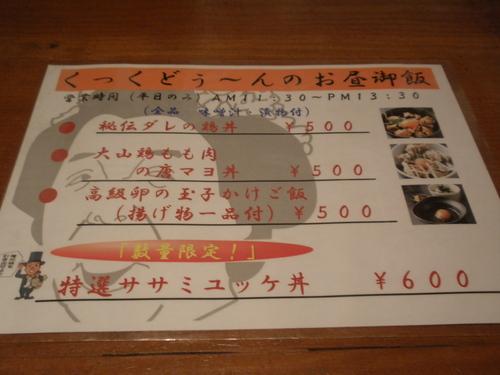 くっくどぅ～んのお昼御飯
営業時間（平日のみ）AM11:30～PM13:30
（全品　味噌汁・漬物付）
秘伝ダレの鶏丼　￥500
大山鶏もも肉
の唐マヨ丼　￥500
高級卵の玉子かけご飯
（揚げ物一品付）￥500
「数量限定！」
特選ササミユッケ丼　￥600